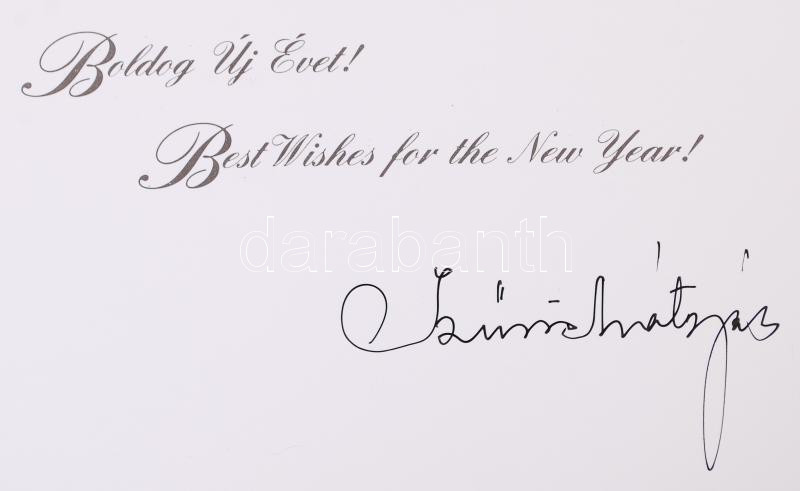 Boldog Új Évet!
Best Wishes for the New Year!
darabanth
Szűrös Mátyás